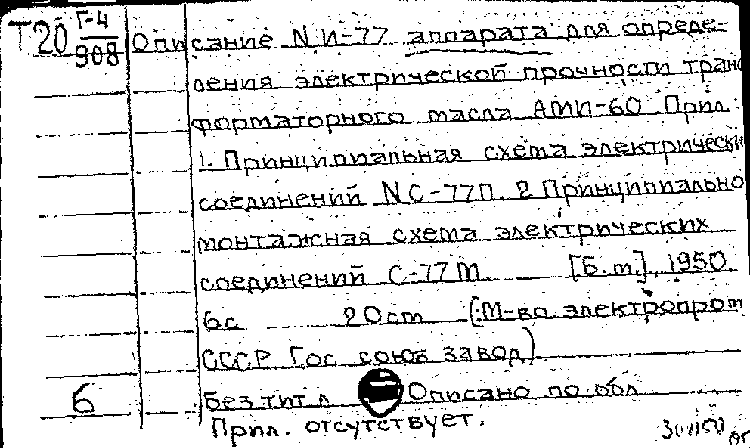 Т20 Г-4/908 Описание N И-77 аппарата для опреде-
ления электрической прочности транс
форматорного масла АМИ-60 Прил:
1. Принципиальная схема электрически
соединений N С-77П. 2 Принципиально
монтажная схема электрических
соединений С-77М [Б.м.], 1950.
6с 20см (М-во электропром
СССР Гос союз завод)
6 Без тит л Описано по обл
Прил. отсутствует.